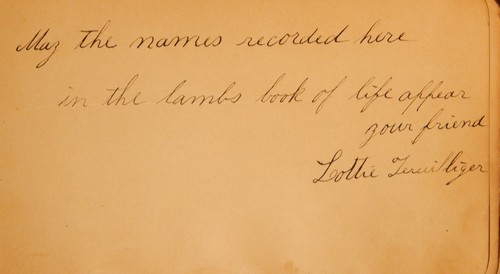 May the names recorded here
in the lambs book of life appear
your friend
Lottie Terwilliger